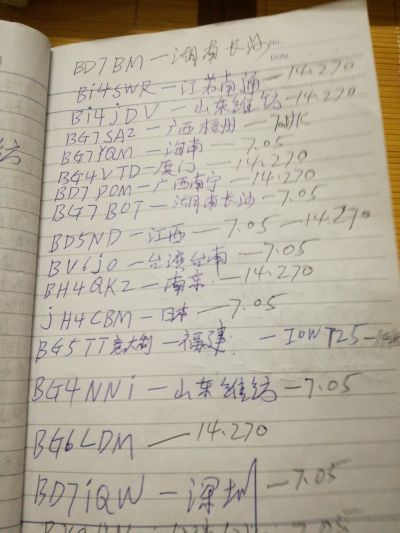 No.
Date
BD7BM—湖南长沙
Bi4SWR—江苏南通—14.270
Bi4jDV—山东维纺—14.270
BG7SAZ—广西梧州
BG7iQM—海南—7.05
BG4VTD—厦门—14.270
BD7POM—广西南宁—14.270
BG7BOT—湖南长沙—7.05
BD5ND—江西—7.05—14.270
BV6jO—台湾台南—7.05
BH4QKZ—南京—14.270
jH4CBM—日本—7.05
BG5TT意大利—福建—IOWT25
BG4NNi—山东维纺—7.05
BG6LDM—14.270
BD7iQW—深圳—7.05
7.05